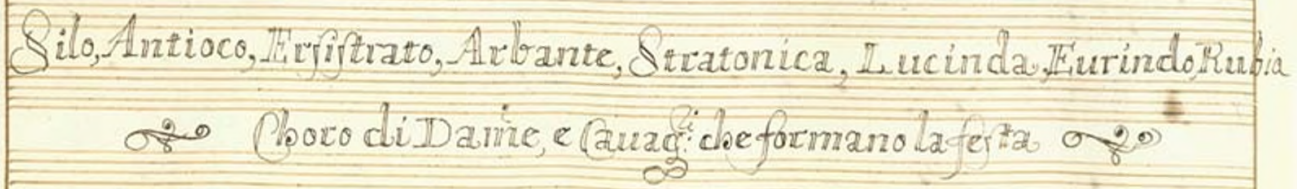 Silo, Antioco, Ersistrato, Arbante, Stratonica, Lucinda, Eurindo, Rubia
Choro di Dame, e Cauag:ri che formano la festa